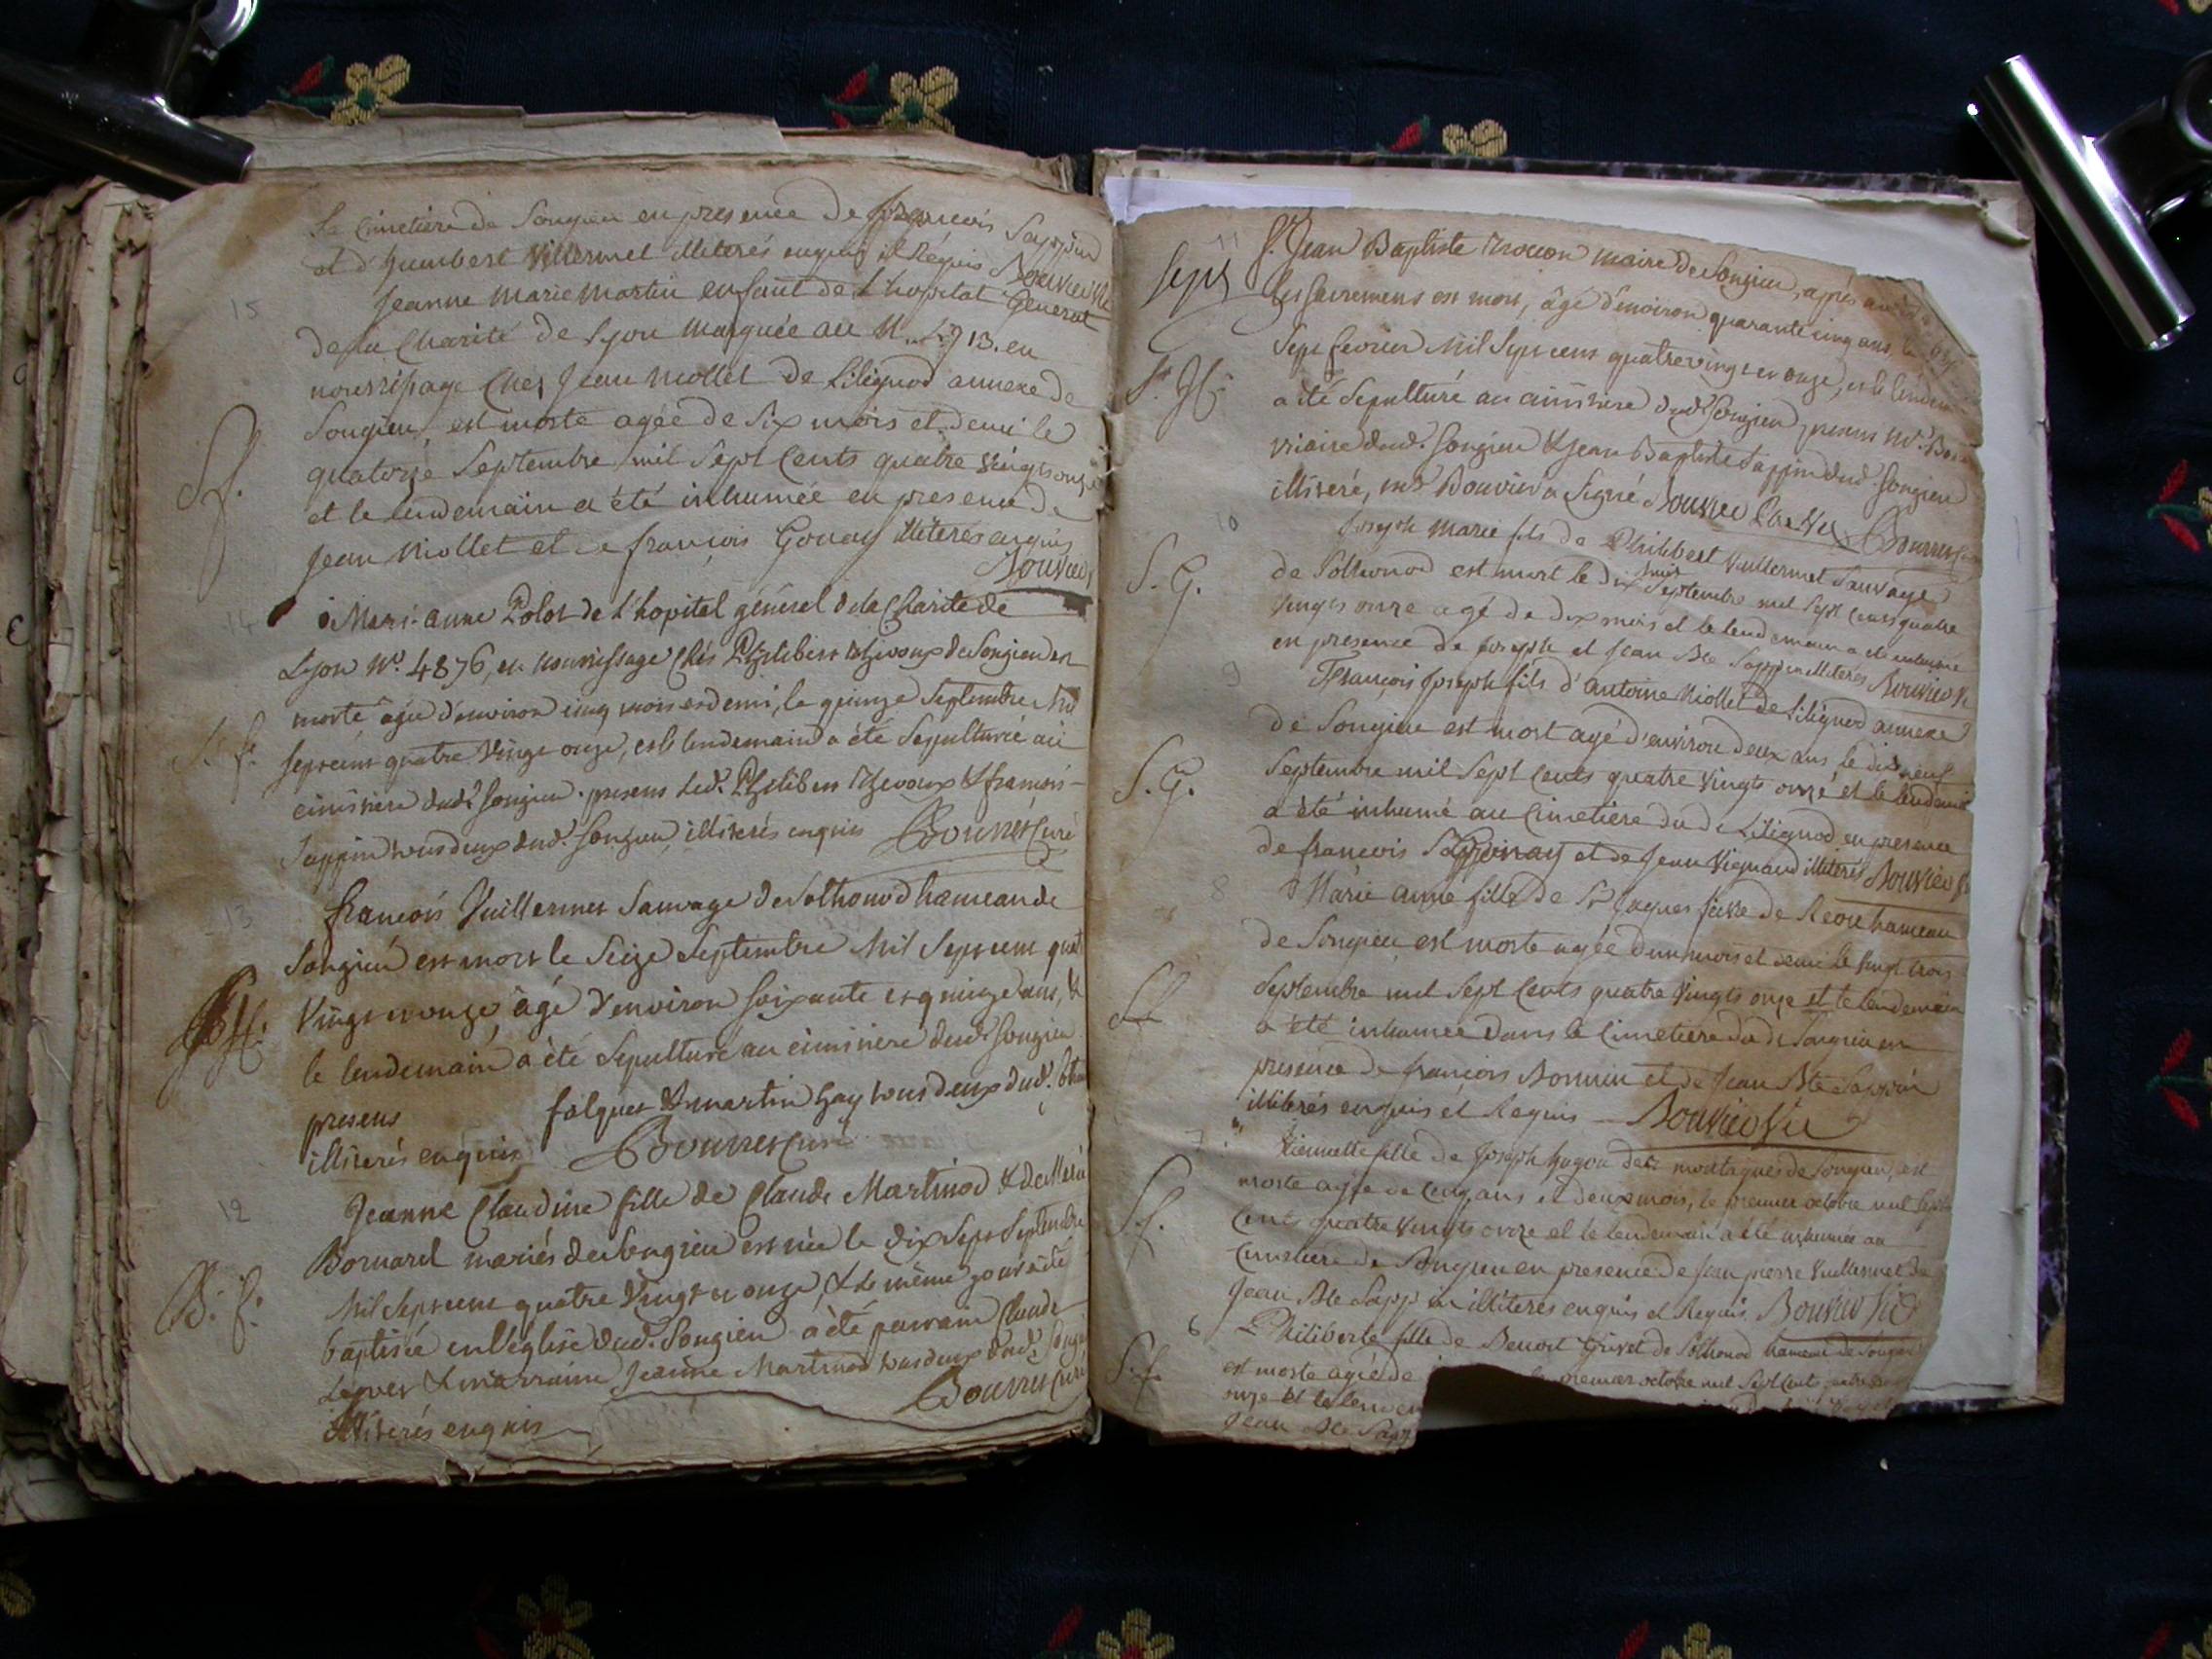 Le Cimetiere de Songieu en presence de françois Sappin
et d'humbert Villermet illiterés enquis et Réquis Bouvier Vic
15
Jeanne Marie Martin enfant de l'hopital General
de la Charité de Lyon Marquée au N.
nourrissage Chez Jean Miollet de Lilignod annexe de
Songieu, est morte agée de Six mois et demi le
S. f.
quatorze Septembre mil Sept Cents quatre Vingts onze
et le lendemain a été inhumée en presence de
Jean Miollet et de françois Gonay illiterés enquis
Bouvier
14
Mari-anne Polot de l'hopital général de la Charité de
Lyon N.º 4876, en nourrissage Chés Philibert de Songieu est
morte âgée d'environ cinq mois et demi, le quinze Septembre Mil
S. f.
septcent quatre Vingt onze, et le lendemain a été Sepulturée au
cimitiere dud.t Songieu. presens led.t Philibert & françois
Sappin tous deux dud.t Songieu, illiterés enquis Bourret Curé
13
françois Vuillermet Sauvage de Solhonod hameau de
Songieu est mort le Seize Septembre Mil Septcent quat
S. H.
Vingt et onze, âgé d'environ soixante et quinze ans, &
le lendemain a été Sepulturé au cimitiere dud.t Songieu
presens folquet & martin hay tous deux dud.t
illiterés enquis Bourret Curé
12
Jeanne Claudine fille de Claude Martinod & de
Bornarel mariés de Songieu est née le dix Sept Septembre
B. f.
Mil Septcent quatre Vingt et onze, & le même jour a été
baptisée en l'église dud.t Songieu a été parrain Claude
& marraine Jeanne Martinod tous deux dud.t Songieu
illiterés enquis Bourret Curé
11
S.r Jean Baptiste maire de Songieu, après avoir
Sept
les sacremens est mort, âgé d'environ quarante cinq ans, le
Sept fevrier Mil Septcent quatre vingt et onze, et le lendem
S. H.
a été Sepulturé au cimitiere dud.t Songieu, presens M.r Bouvier
vicaire dud.t Songieu & Jean Baptiste Sappin dud.t Songieu
illiteré, M.r Bouvier a Signé Bouvier Bourret Curé
10
Joseph Marie fils de Philibert Vuillermet Sauvage
S. G.
de Solhonod est mort le dix huit Septembre mil Sept Cents quatre
Vingts onze agé de dix mois et le lendemain a été inhumé
en presence de Joseph et Jean Bte Sappin illiterés Bouvier Vi
9
François Joseph fils d'antoine Miollet de Lilignod annexe
de Songieu est mort agé d'environ deux ans le dix neuf
S. G.
Septembre mil Sept Cents quatre Vingts onze et le lendemain
a été inhumé au Cimetiere du d Lilignod en presence
de francois et de Jean Vignand illiterés Bouvier
8
Marie anne fille de Sr Jaques de Reon hameau
de Songieu est morte agée d'un mois et demi le vingt trois
S. f.
Septembre mil Sept Cents quatre Vingts onze et le lendemain
a été inhumée dans le Cimetiere dud Songieu en
presence de francois Bonnin et de Jean Bte Sappin
illiterés enquis et Requis Bouvier Vic
7
fille de Joseph hugon des montagnes de Songieu, est
morte agée de Cinq ans et deux mois, le premier octobre mil Sept
S. f.
Cents quatre Vingts onze et le lendemain a été inhumée au
Cimetiere de Songieu en presence de Jean pierre Vuillermet de
Jean Bte Sappin illiterés enquis et Requis Bouvier Vic
6
Philiberte fille de Benoit Grivet de Solhonod hameau de Songieu
S. f.
est morte agée de premier octobre mil Sept Cent
onze et le lendem
Jean Bte Sapp